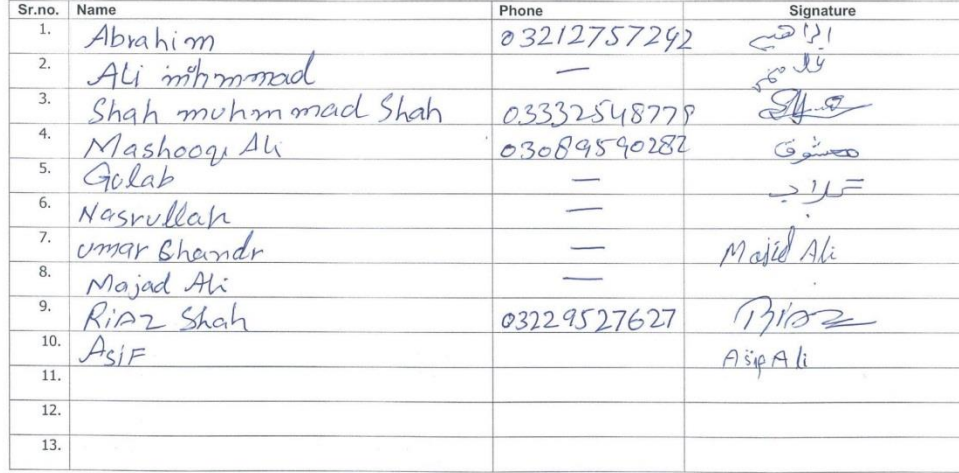 Sr.no. Name Phone Signature
1. Abrahim 03212757242 ابراهيم
2. Ali mhmmad —
3. Shah muhmmad Shah 03332548778
4. Mashooq Ali 03089590282 معشوق
5. Golab — گلاب
6. Nasrullah —
7. umar Bhandr — Majid Ali
8. Majad Ali —
9. Riaz Shah 03229527627 Riaz
10. Asif Asip Ali
11.
12.
13.